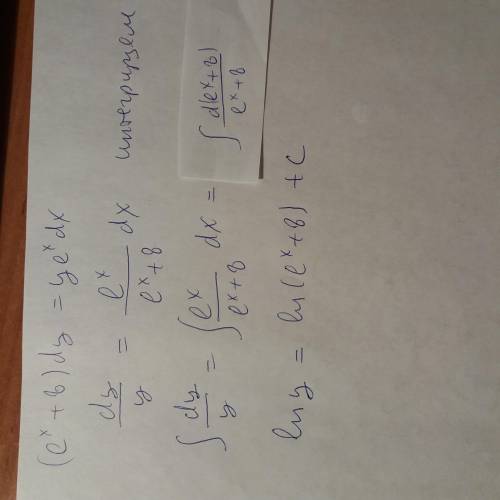 (eˣ + 8) dy = yeˣ dx
dy/y = eˣ/(eˣ + 8) dx интегрируем
∫ dy/y = ∫ eˣ/(eˣ + 8) dx = ∫ d(eˣ + 8)/(eˣ + 8)
ln y = ln(eˣ + 8) + C